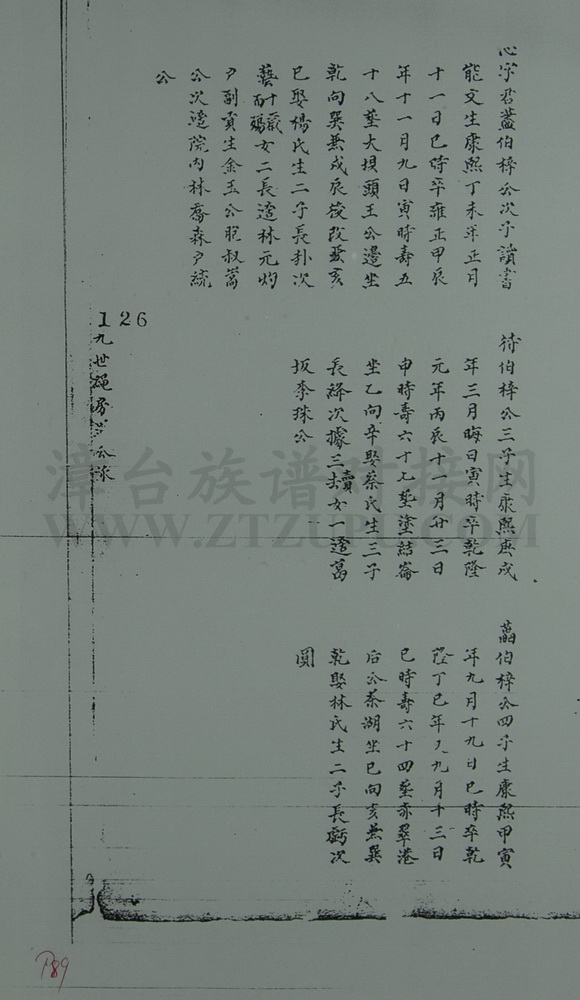 心字君藎伯梓公次子讀書
能文生康熙丁未年正月
十一日巳時卒雍正甲辰
年十一月九日寅時壽五
十八塟大坝頭王公邊坐
乾向巽兼戌辰後改兼亥
巳娶楊氏生二子長扑次
藝十歲而殤女二長適林元灼
户副貢生金玉公胞叔萬
公次適院内林喬森户統
公
待伯梓公三子生康熙庚戌
年三月晦日寅時卒乾隆
元年丙辰十一月廿三日
申時壽六十七塟塗結崙
坐乙向辛娶蔡氏生三子
長繹次據三賣女一適萬
坂李珠公
伯梓公四子生康熙甲寅
年九月十九日巳時卒乾
隆丁巳年又九月十三日
巳時壽六十四塟赤翠港
后公泰湖坐巳向亥兼巽
乾娶林氏生二子長虧次
圓
126
九世繩房公派
漳台族谱对接网
WWW.ZTZUPU.COM
P89